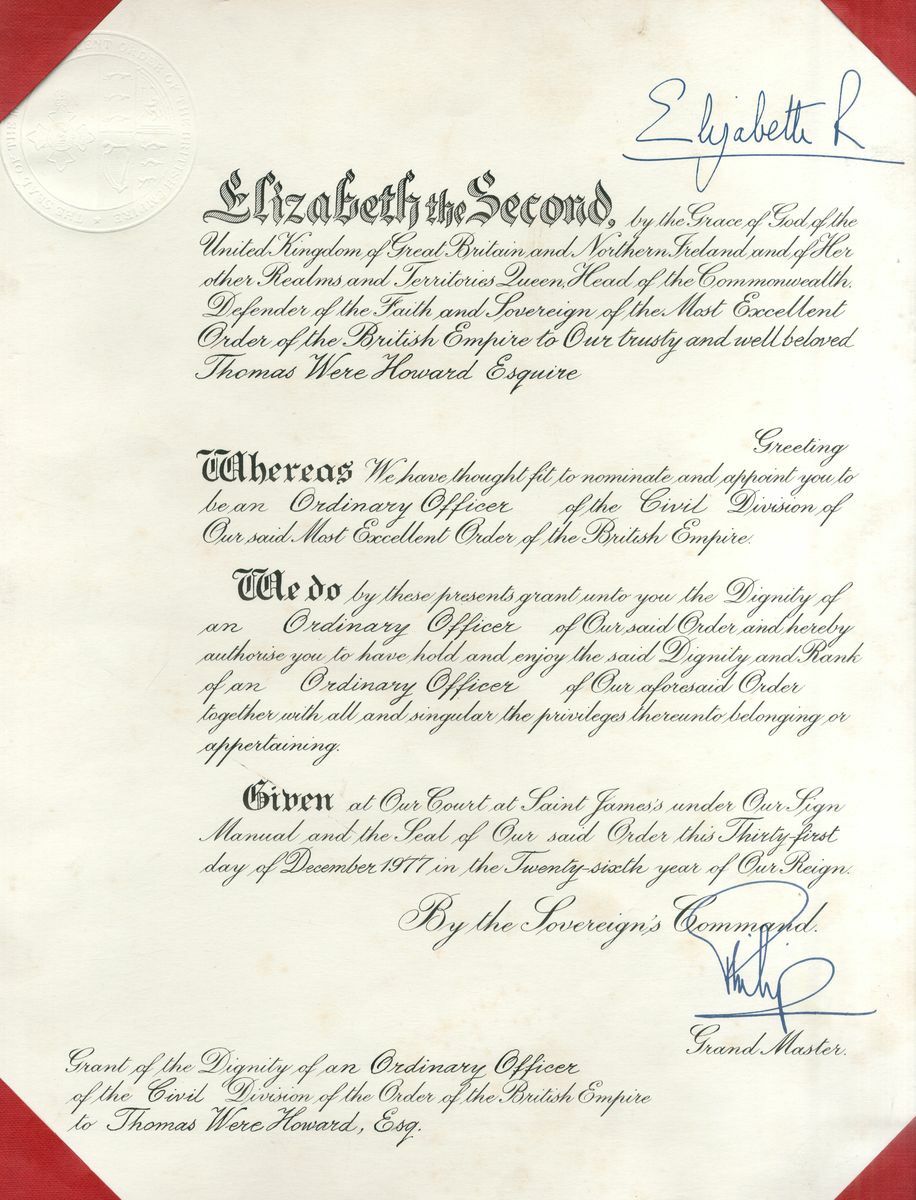 Elizabeth R
Elizabeth the Second, by the Grace of God, of the
United Kingdom of Great Britain and Northern Ireland and of Her
other Realms and Territories Queen, Head of the Commonwealth,
Defender of the Faith and Sovereign of the Most Excellent
Order of the British Empire to Our trusty and well beloved
Thomas Were Howard Esquire
Greeting
Whereas We have thought fit to nominate and appoint you to
be an Ordinary Officer of the Civil Division of
Our said Most Excellent Order of the British Empire.
We do by these presents grant unto you the Dignity of
an Ordinary Officer of Our said Order and hereby
authorise you to have hold and enjoy the said Dignity and Rank
of an Ordinary Officer of Our aforesaid Order
together with all and singular the privileges thereunto belonging or
appertaining.
Given at Our Court at Saint James's under Our Sign
Manual and the Seal of Our said Order this Thirty-first
day of December 1977 in the Twenty-sixth year of Our Reign.
By the Sovereign's Command.
Philip
Grand Master.
Grant of the Dignity of an Ordinary Officer
of the Civil Division of the Order of the British Empire
to Thomas Were Howard, Esq.